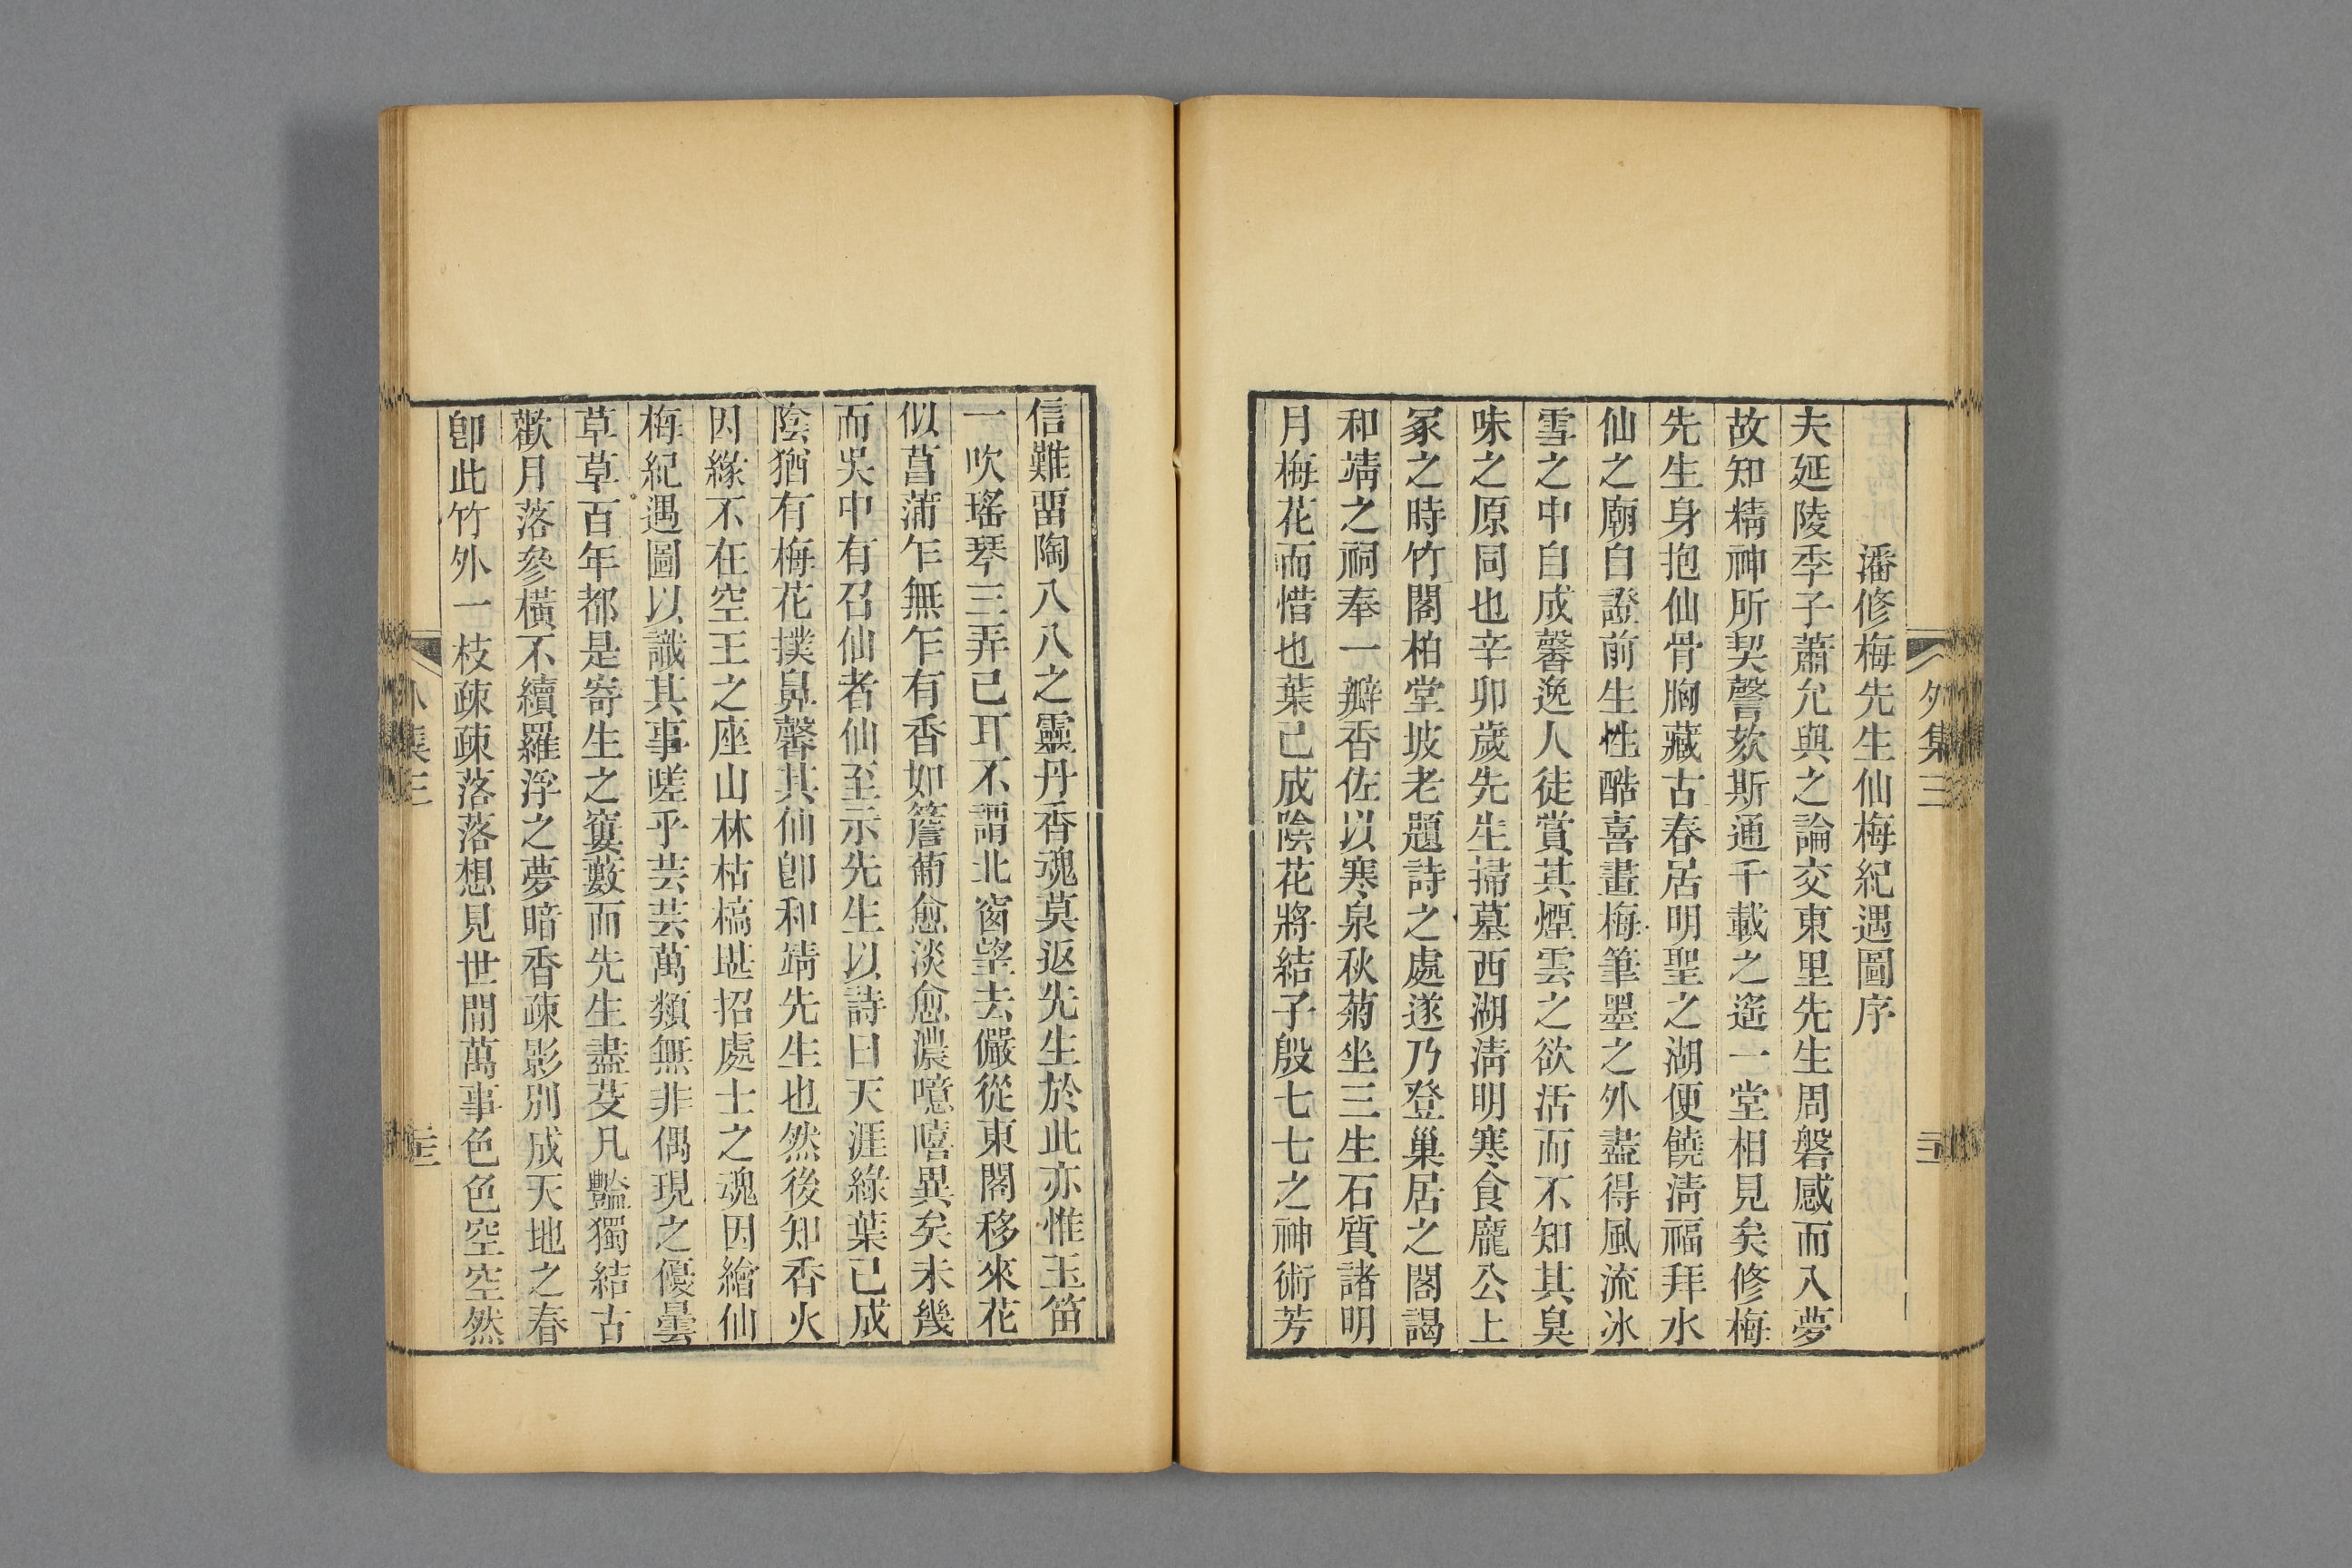 外集三
潘修梅先生仙梅紀遇圖序
夫延陵季子蕭允與之論交東里先生周磐感而入夢
故知精神所契謦欬斯通千載之遙一堂相見矣修梅
先生身抱仙骨胸藏古春居明聖之湖便饒清福拜水
仙之廟自證前生性酷喜畫梅筆墨之外盡得風流冰
雪之中自成馨逸人徒賞其煙雲之欲活而不知其臭
味之原同也辛卯歲先生掃墓西湖清明寒食龐公上
冢之時竹閣柏堂坡老題詩之處遂乃登巢居之閣謁
和靖之祠奉一瓣香佐以寒泉秋菊坐三生石質諸明
月梅花而惜也葉已成陰花將結子殷七七之神術芳
信難畱陶八八之靈丹香魂莫返先生於此亦惟玉笛
一吹瑤琴三弄已耳不謂北窗望去儼從東閣移來花
似菖蒲乍無乍有香如簷蔔愈淡愈濃噫嘻異矣未幾
而吳中有召仙者仙至示先生以詩曰天涯綠葉已成
陰猶有梅花撲鼻馨其仙卽和靖先生也然後知香火
因緣不在空王之座山林枯槁堪招處士之魂因繪仙
梅紀遇圖以識其事嗟乎芸芸萬類無非偶現之優曇
草草百年都是寄生之窶藪而先生盡芟凡豔獨結古
歡月落參橫不續羅浮之夢暗香疎影別成天地之春
卽此竹外一枝疎疎落落想見世間萬事色色空空然
外集三